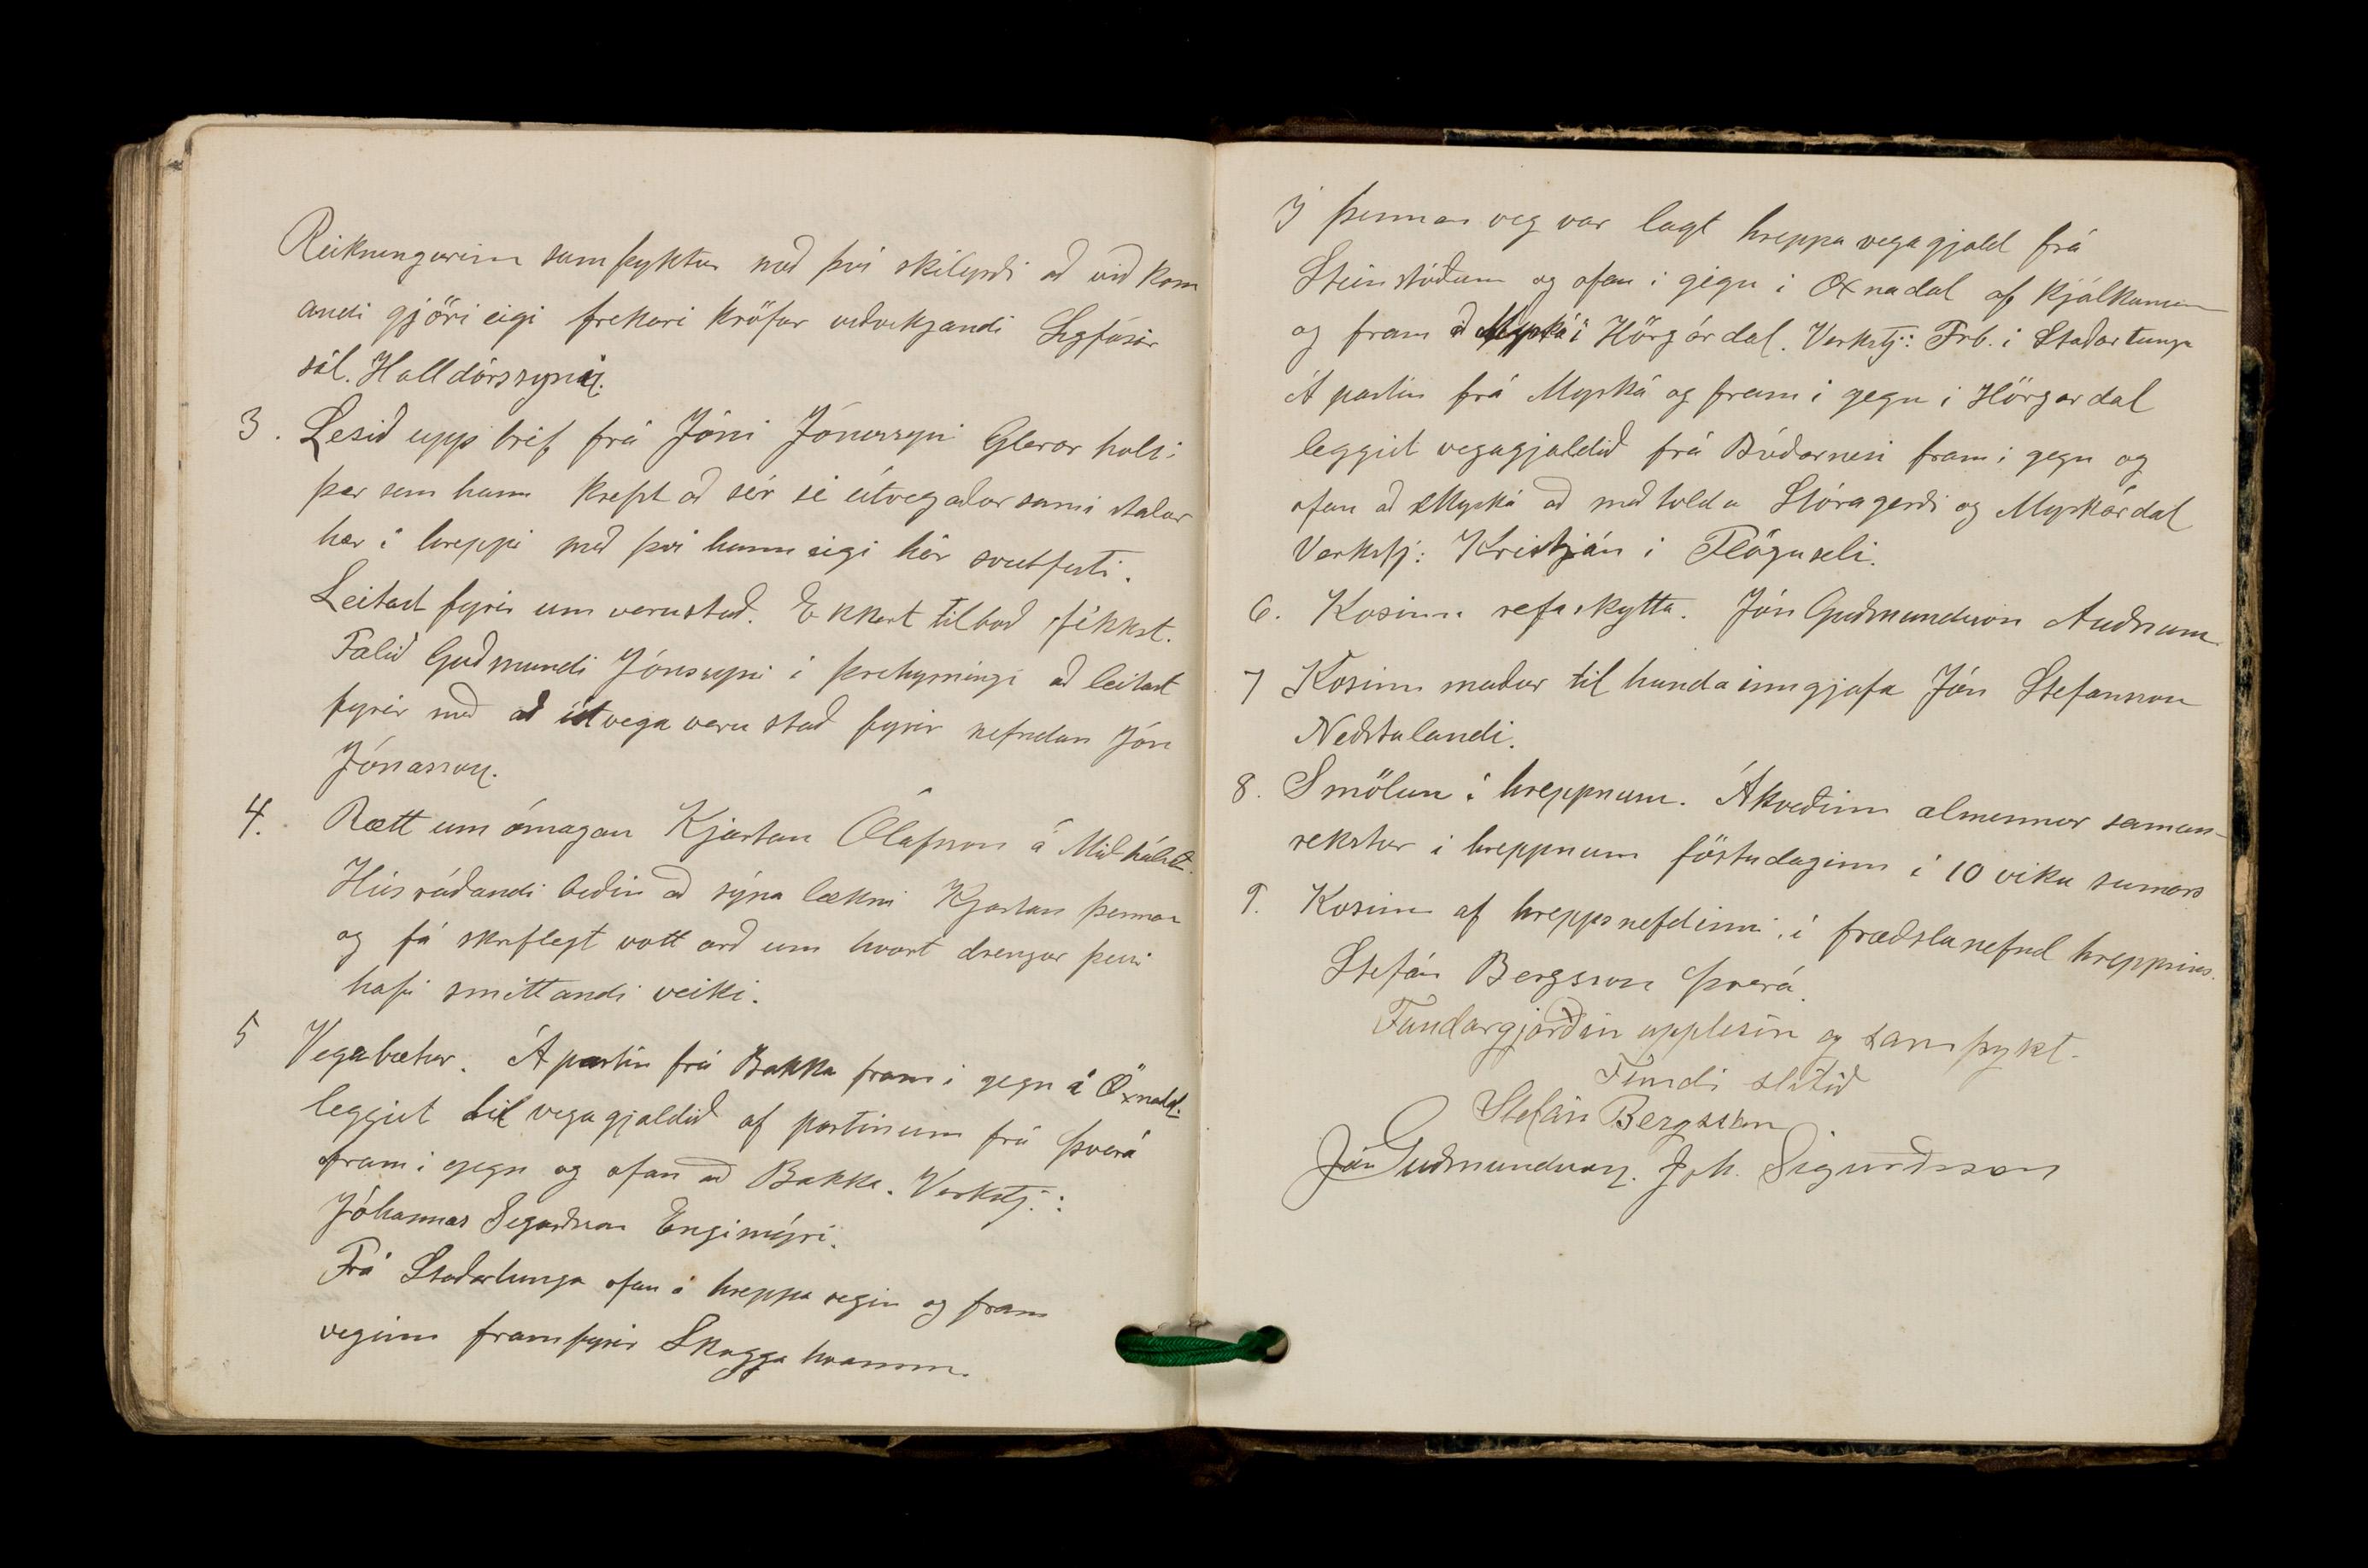 Reikningurinn samþyktur með því skilyrði að við kom
andi gjöri eigi frekari kröfur viðvikjandi Sigfúsir
sál. Halldórssyni.
3. Lesið upp bréf frá Jóni Jónassyni Glerar holti
þar sem hann krefst að sér sé útvegaður sama staður
hér í hreppi með því hann eigi hér sveitfesti.
Leitast fyrir um verustað. Ekkert tilboð fékkst.
Falið Guðmundi Jónssyni í þrehyrningi að leitast
fyrir með að útvega veru stað fyrir nefndan Jón
Jónasson.
4. Rætt um ómagan Kjartan Ólafsson á Miðhálst.
Húsráðandi beðin að sýna lækni Kjartan þennan
og fá skriflegt vott orð um hvort drengur þessi
hafi smittandi veiki.
5 Vegabætur. Á partin frá Bakka fram í gegn á Öxnadal
leggist til vegagjaldið af partinum frá þverá
fram í gegn og ofan að Bakka. Verkstj.:
Jóhannes Sigurðsson Engimýri.
Frá Staðartunga ofan á hreppa vegin og fram
veginn framfyrir Skugga hvamm.
Í þennan veg var lagt hreppa vegagjald frá
Steinstöðum og ofan í gegn í Öxnadal af Kjálkanum
og fram að Myrká í Hörgárdal. Verkstj: Frb. í Staðartunga
Á partin frá Myrká og fram í gegn í Hörgardal
leggist vegagjaldið frá Búðarnesi fram í gegn og
ofan að Myrká að með tolda Stóragerði og Myrkárdal
Verkstj: Kristján í Flöguseli.
6. Kosinn refaskytta. Jón Guðmundsson Auðnum.
7 Kosinn maður til hundainngjafa Jón Stefansson
Neðstalandi.
8. Smölun í hreppnum. Ákveðinn almennur saman-
rekstur í hreppnum föstudaginn í 10 viku sumars
9. Kosinn af hreppsnefdinni í fræðslunefnd hreppsins.
Stefán Bergsson þverá.
Fundargjörðin upplesin og samþykt.
Fundi slitið
Stefán Bergsson
Jón Guðmundsson. Joh. Sigurðsson